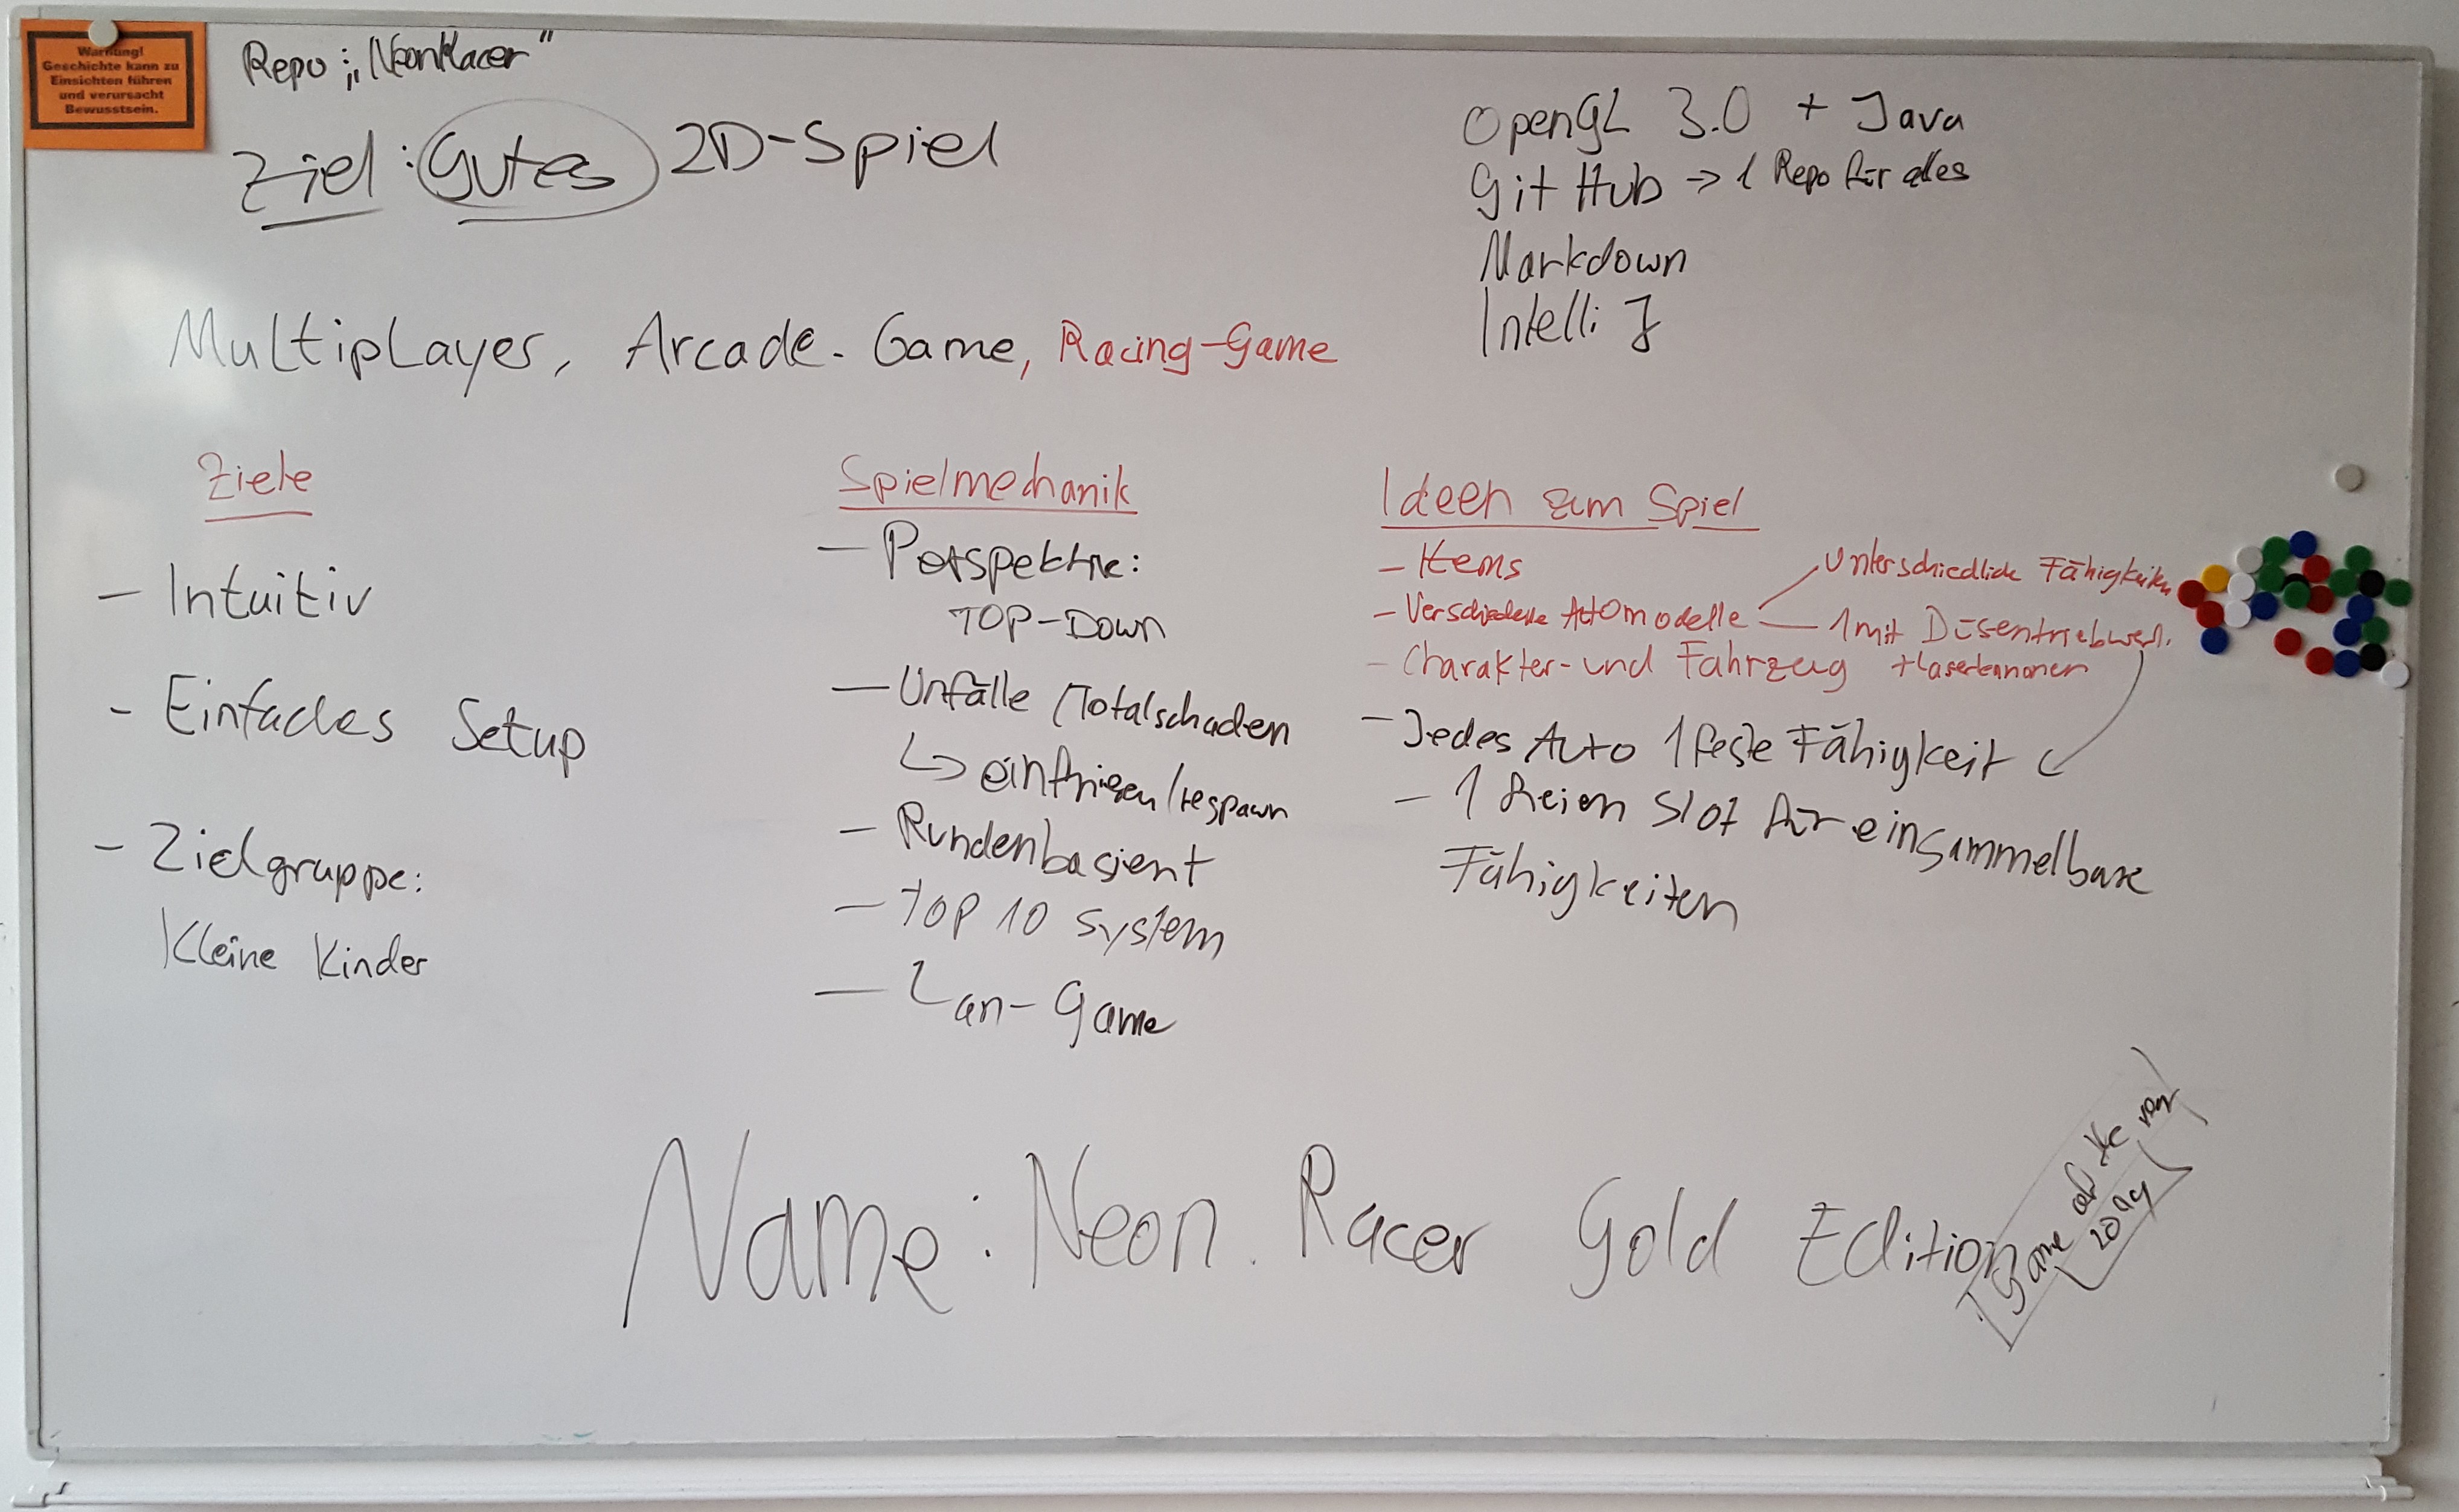 Warnung!
Geschichte kann zu
Einsichten führen
und verursacht
Bewusstsein.
Repo: „NeonRacer“
Ziel: Gutes 2D-Spiel
OpenGL 3.0 + Java
GitHub → 1 Repo für alles
Markdown
IntelliJ
Multiplayer, Arcade-Game, Racing-Game
Ziele
- Intuitiv
- Einfaches Setup
- Zielgruppe:
Kleine Kinder
Spielmechanik
- Perspektive:
TOP-Down
- Unfälle /Totalschaden
↳ einfriesen/respawn
- Rundenbasiert
- TOP 10 system
- Lan-Game
Ideen zum Spiel
- Items
- Verschiedene Automodelle
unterschiedliche Fähigkeiten
1 mit Düsentriebwerk
+ Laserkannonen
- Charakter- und Fahrzeug
- Jedes Auto 1 feste Fähigkeit
- 1 freien Slot für einsammelbare
Fähigkeiten
Name: Neon Racer Gold Edition
Game of the year